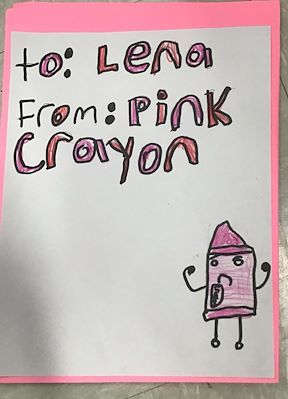 to: Lena
From: Pink
Crayon